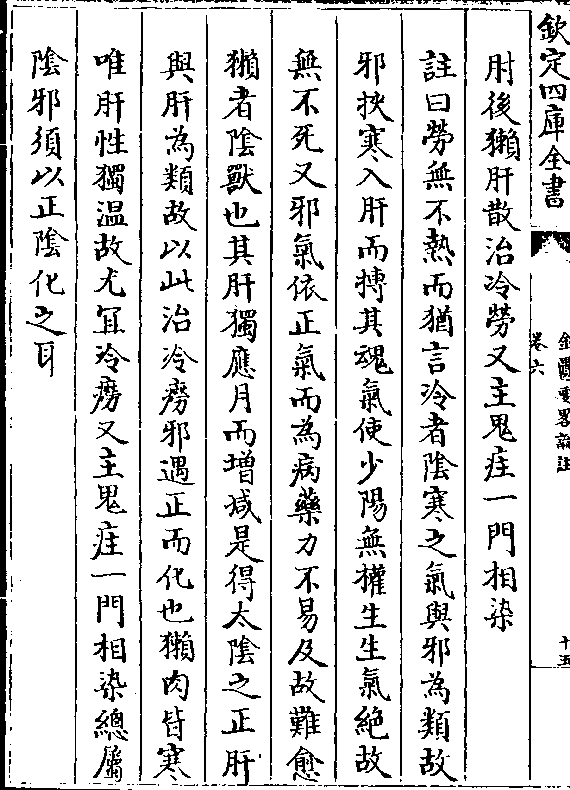 欽定四庫全書
金匱要略論註
卷六
十五
肘後獺肝散治冷勞又主鬼疰一門相染
註曰勞無不熱而猶言冷者陰寒之氣與邪為類故
邪挾寒入肝而搏其魂氣使少陽無權生生氣絶故
無不死又邪氣依正氣而為病藥力不易及故難愈
獺者陰獸也其肝獨應月而增减是得太陰之正肝
與肝為類故以此治冷癆邪遇正而化也獺肉皆寒
唯肝性獨温故尤冝冷癆又主鬼疰一門相染總屬
陰邪須以正陰化之耳